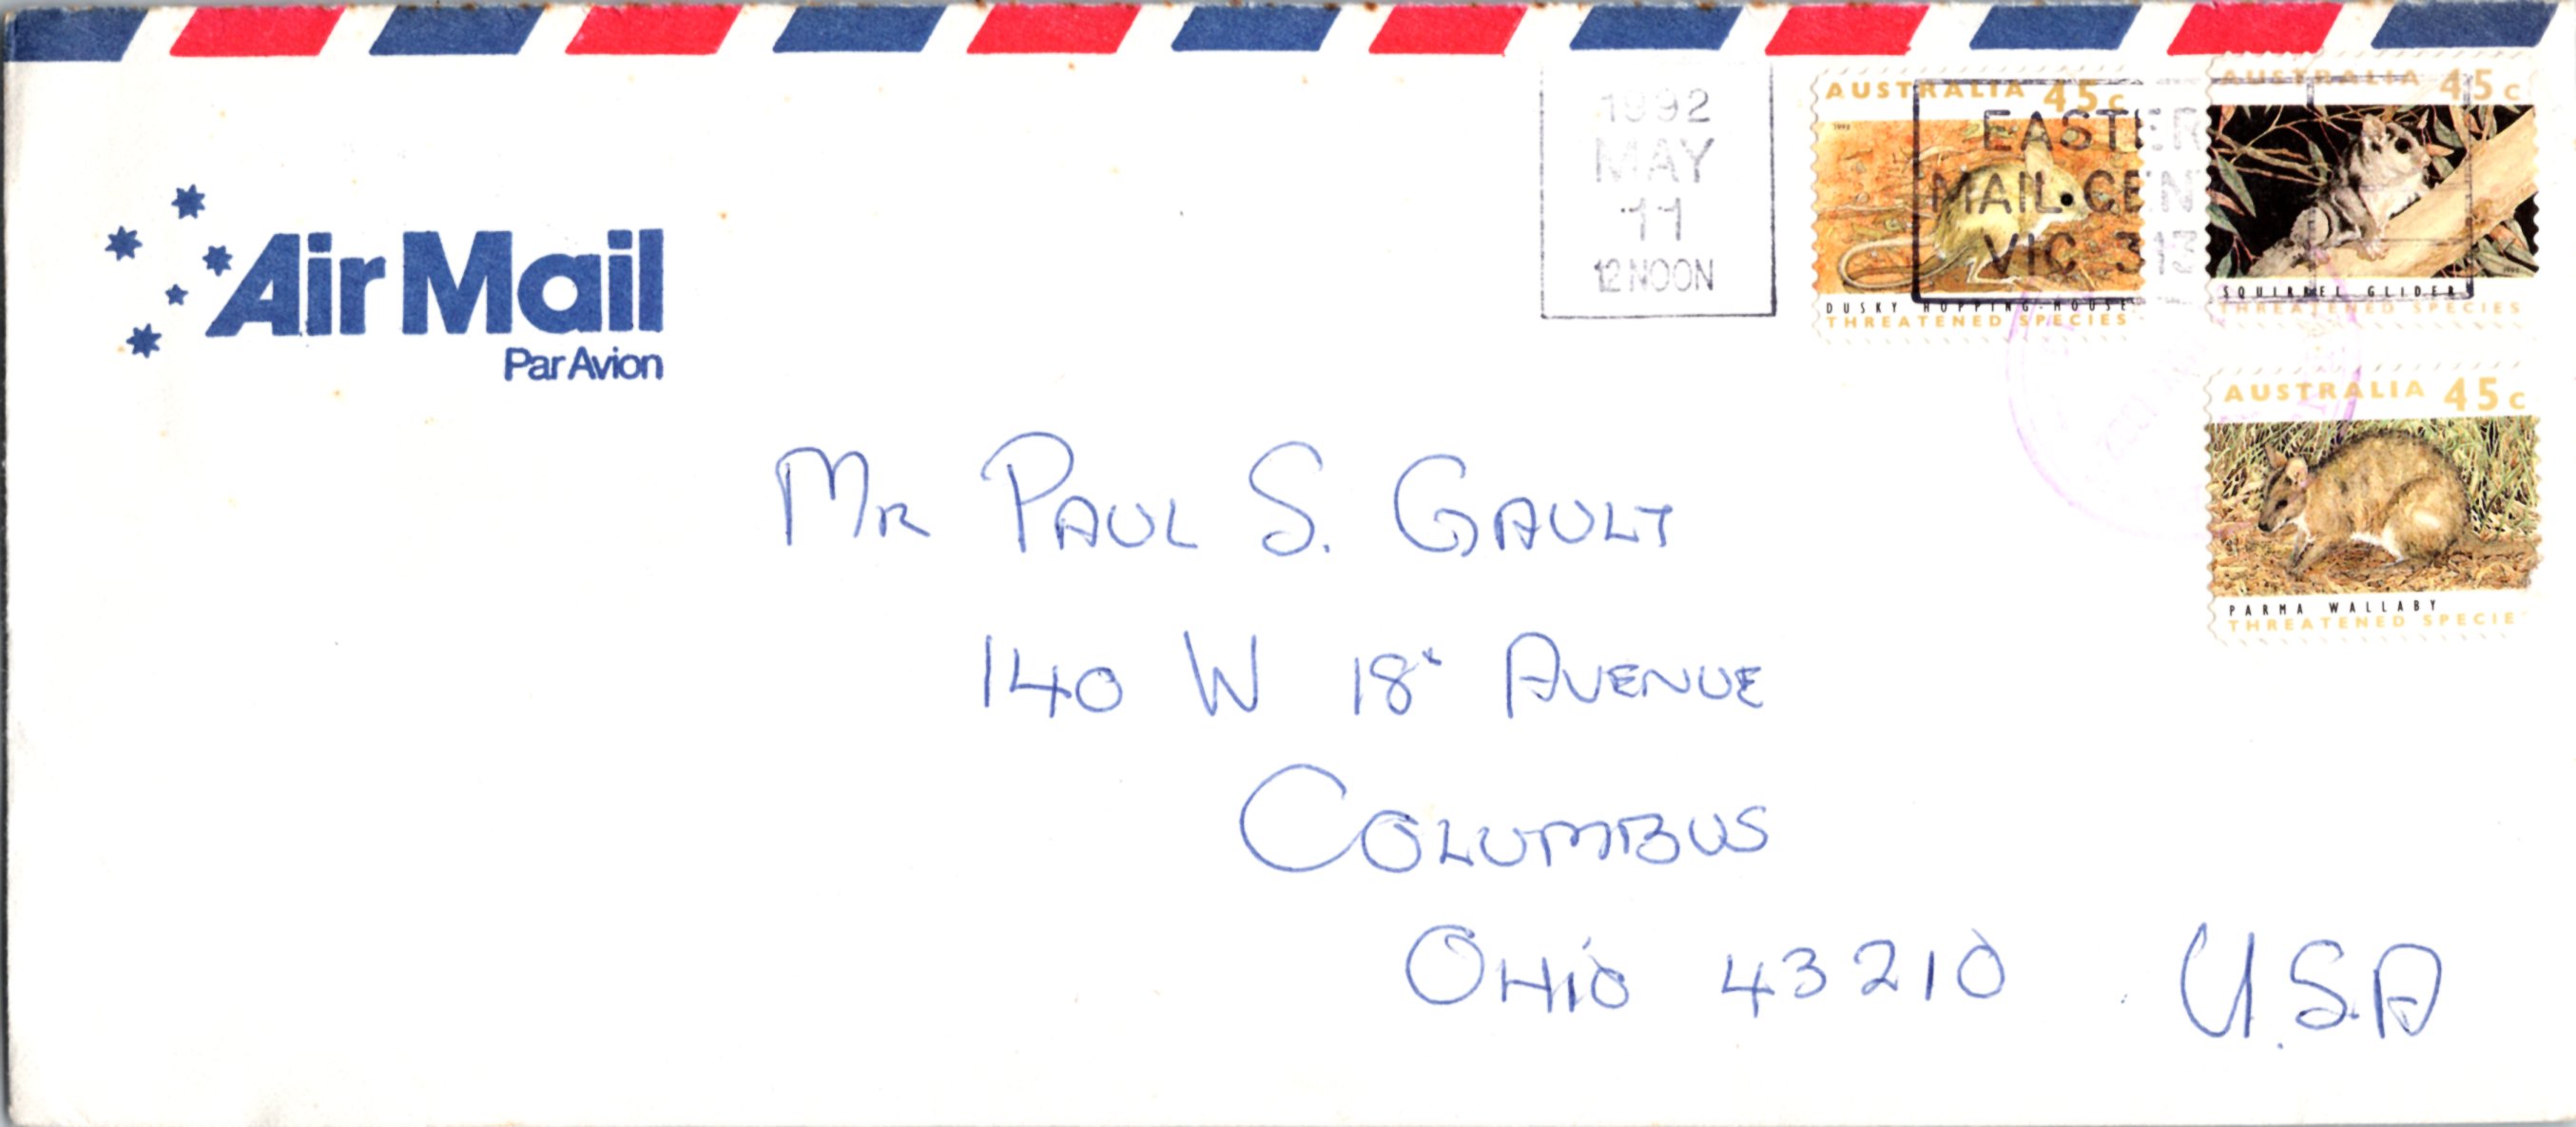 Air Mail
Par Avion
1992
MAY
11
12 NOON
AUSTRALIA 45c
EASTER
MAIL CEN
VIC 313
DUSKY HOPPING-MOUSE
THREATENED SPECIES
AUSTRALIA 45c
SQUIRREL GLIDER
THREATENED SPECIES
AUSTRALIA 45c
PARMA WALLABY
THREATENED SPECIE
MR PAUL S. GAULT
140 W 18 AVENUE
COLUMBUS
OHIO 43210 U.S.A